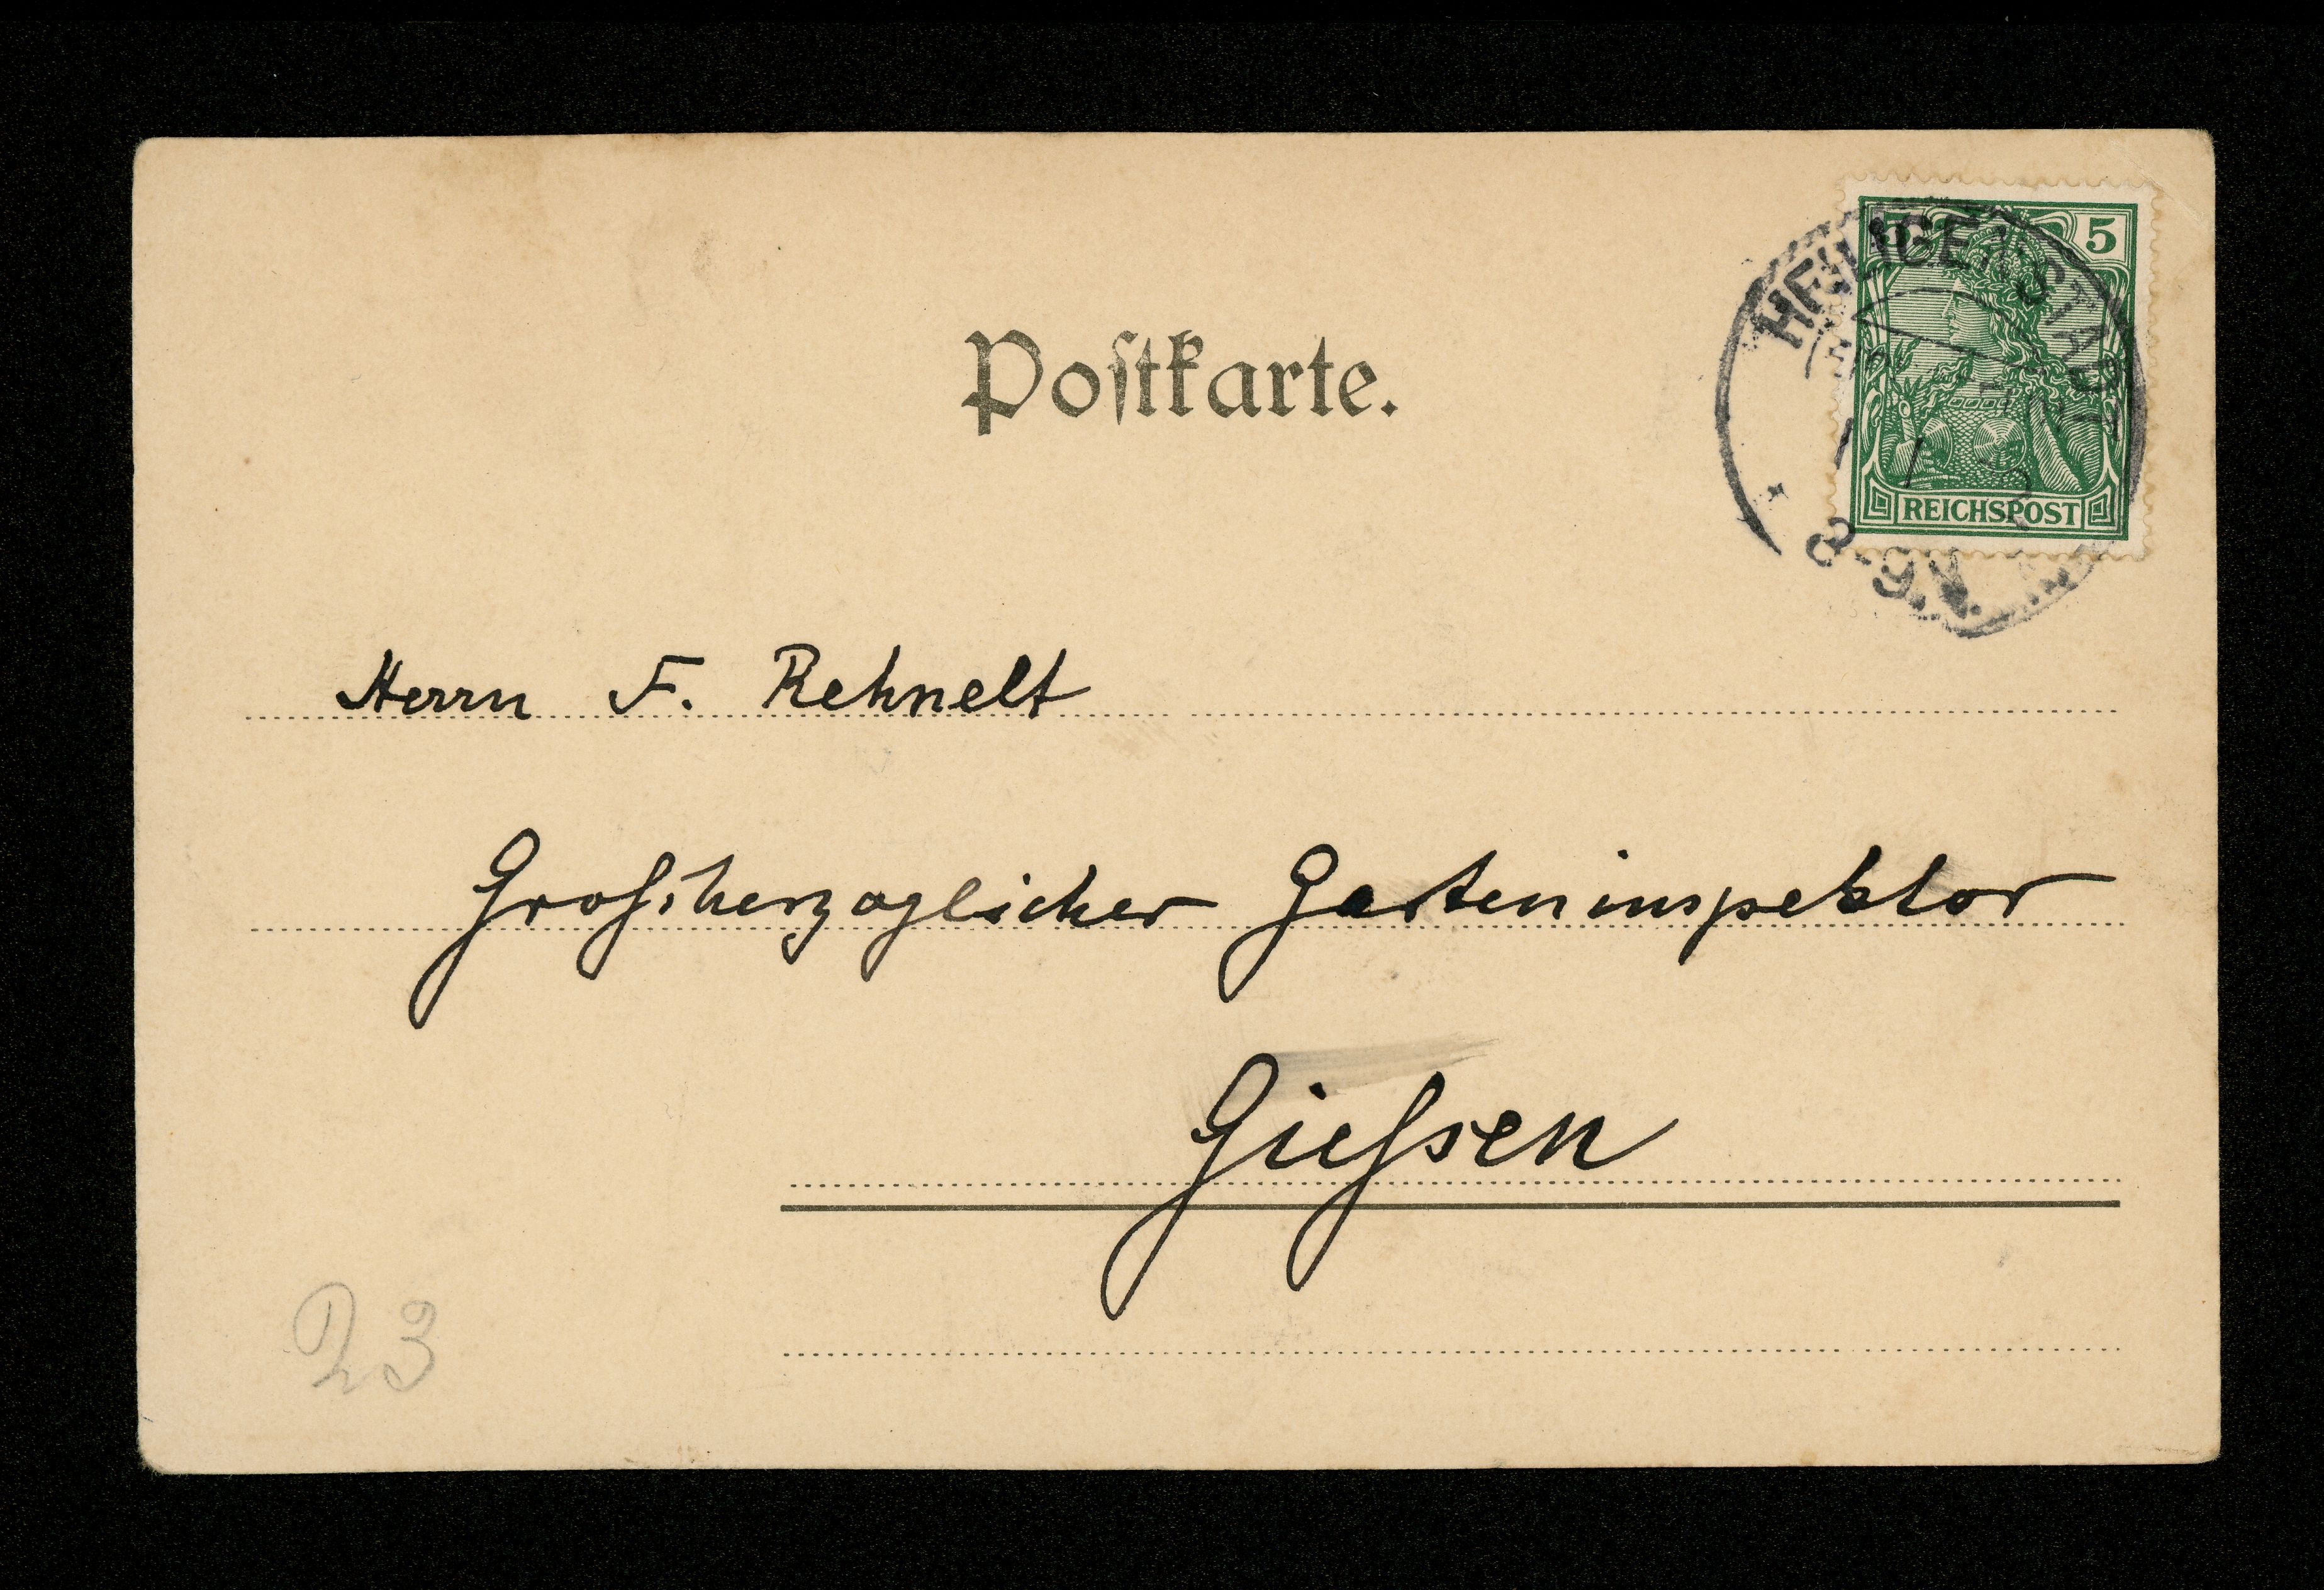 Postkarte.
5
HEILIGENSTADT
8-9.N.
REICHSPOST
Herrn F. Rehnelt
Großherzoglicher Garteninspektor
Giessen
23